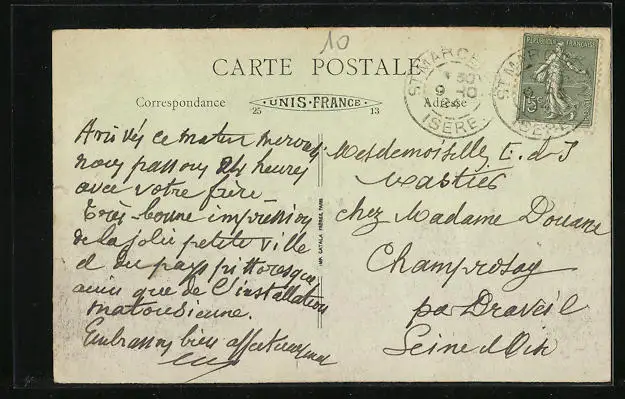 10
CARTE POSTALE
Correspondance
UNIS-FRANCE
25
13
Adresse
ST MARCE
9 10
ISERE
REPUBLIQUE FRANÇAISE
15c
Arrivés ce matin
nous passons 24 heures
avec votre frère
Très bonne impression
de la jolie petite ville
et du pays pittoresque
ainsi que de l'installation
Embrassons bien affectueusement
IMP. CATALA FRÈRES, PARIS
Mesdemoiselles E. et J
chez Madame Douane
Champrosay
par Draveil
Seine et Oise